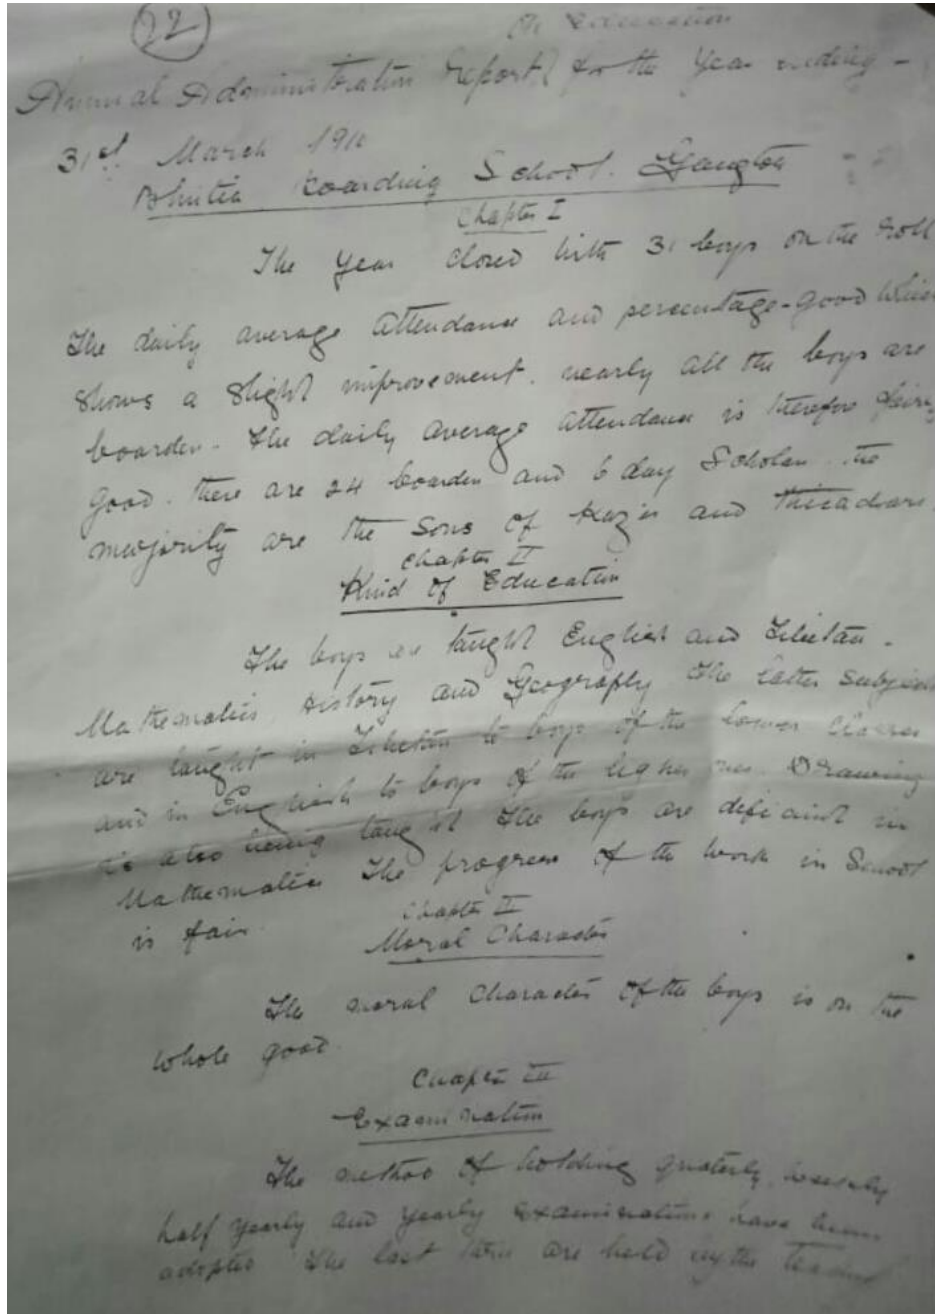 22
On Education
Annual Administration Report for the Year ending -
31st March 1911
Bhutia Boarding School. Gangtok
Chapter I
The Year closed with 31 boys on the Roll
The daily average attendance and percentage - good which
shows a slight improvement. nearly all the boys are
boarders. The daily average attendance is therefore fairly
good. there are 24 boarders and 6 day Scholars. the
majority are the Sons of Kazis and Thicadars.
Chapter II
Kind of Education
The boys are taught English and Tibetan.
Mathematics, History and Geography The latter subjects
are taught in Tibetan to boys of the Lower Classes
and in English to boys of the higher ones. Drawing
is also being taught The boys are deficient in
Mathematics The progress of the work in School
is fair.
Chapter II
Moral Character
The moral Character of the boys is on the
whole good.
Chapter III
Examination
The method of holding quaterly,
half yearly and yearly examinations have been
adopted The last three are held by the